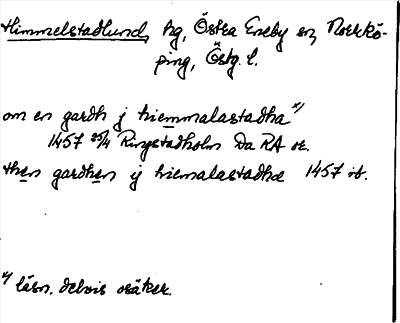 Himmelstadlund, hg, Östra Eneby sn, Norrkö-
ping, Östg. l.
om en gardh j hiemmalastadha x)
1457 25/4 Ringstadholm Da RA or.
then gardhen ij hiemalastadha 1457 ib.
x) läsn. delvis osäker.